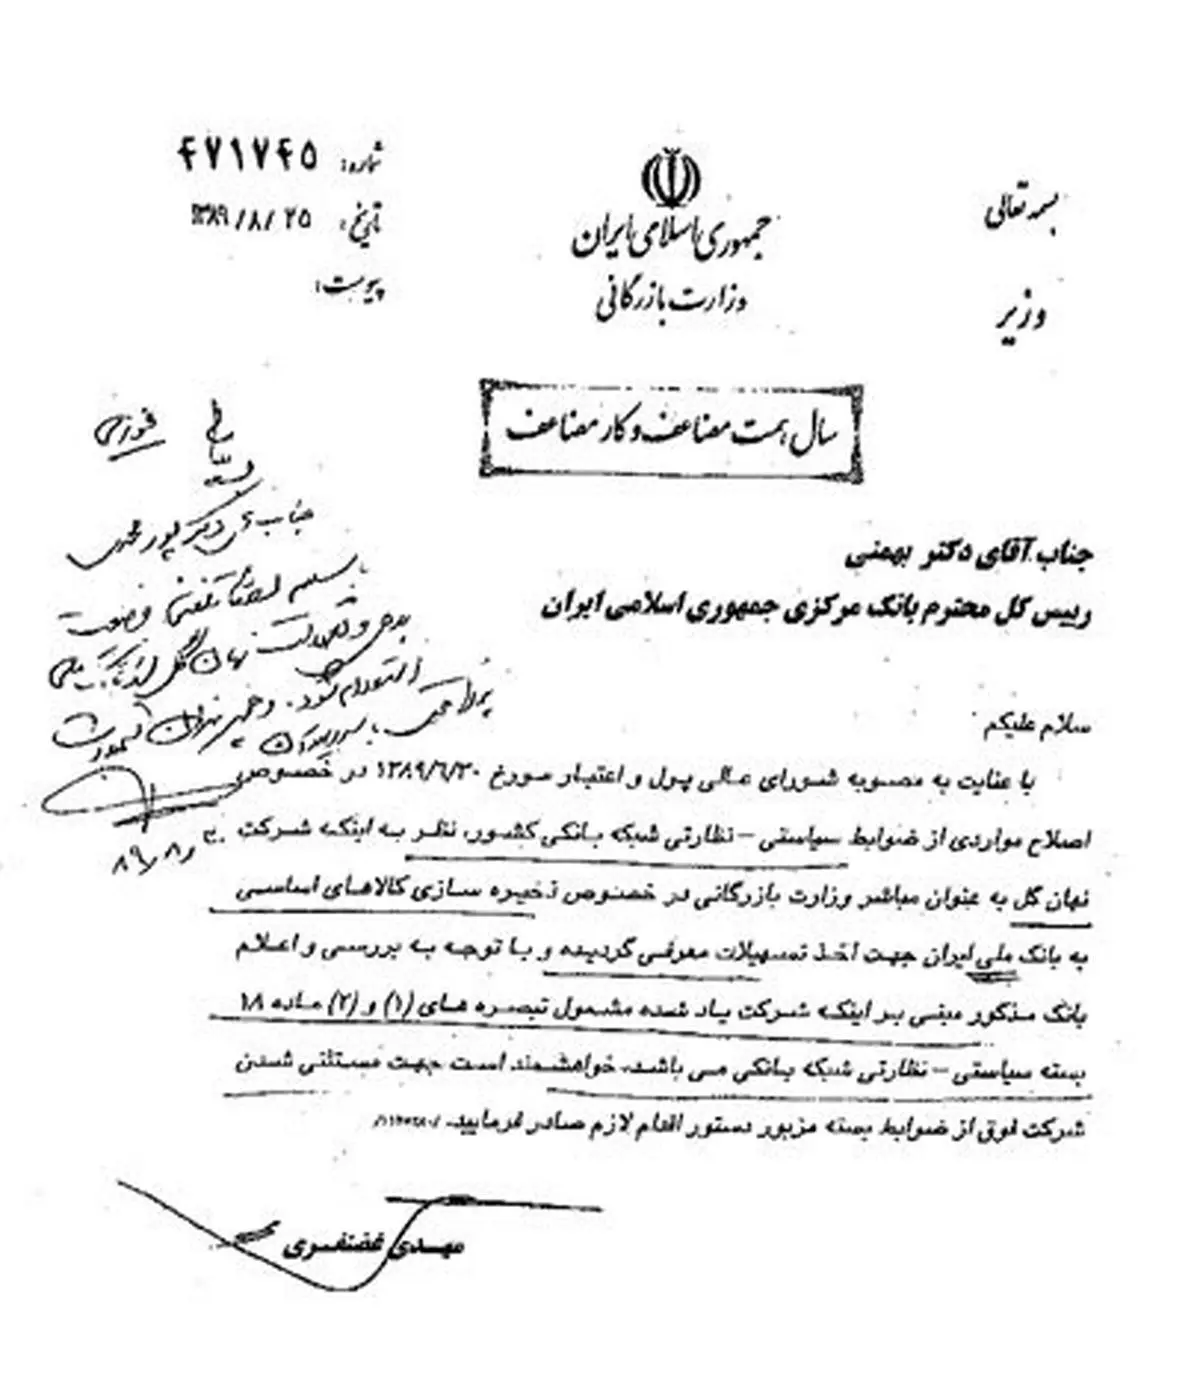 بسمه تعالی
وزیر
جمهوری اسلامی ایران
وزارت بازرگانی
شماره: ۴۷۱۷۴۵
تاریخ: ۱۳۸۹/۸/۲۵
پیوست:
سال همت مضاعف و کار مضاعف
فوری
جناب دکتر پورمحمدی
با سلام لطفاً تلفنی وضعیت
بدهی و تعهدات نهان گل از بانک ملی
استعلام شود.
۸۹/۸/۳۰
جناب آقای دکتر بهمنی
رییس کل محترم بانک مرکزی جمهوری اسلامی ایران
سلام علیکم
با عنایت به مصوبه شورای عالی پول و اعتبار مورخ ۱۳۸۹/۶/۳۰ در خصوص
اصلاح مواردی از ضوابط سیاستی – نظارتی شبکه بانکی کشور، نظر به اینکه شرکت
نهان گل به عنوان مباشر وزارت بازرگانی در خصوص ذخیره سازی کالاهای اساسی
به بانک ملی ایران جهت اخذ تسهیلات معرفی گردیده و با توجه به بررسی و اعلام
بانک مذکور مبنی بر اینکه شرکت یاد شده مشمول تبصره های (۱) و (۲) ماده ۱۸
بسته سیاستی – نظارتی شبکه بانکی می باشد، خواهشمند است جهت مستثنی شدن
شرکت فوق از ضوابط بسته مزبور دستور اقدام لازم صادر فرمایید.
مهدی غضنفری